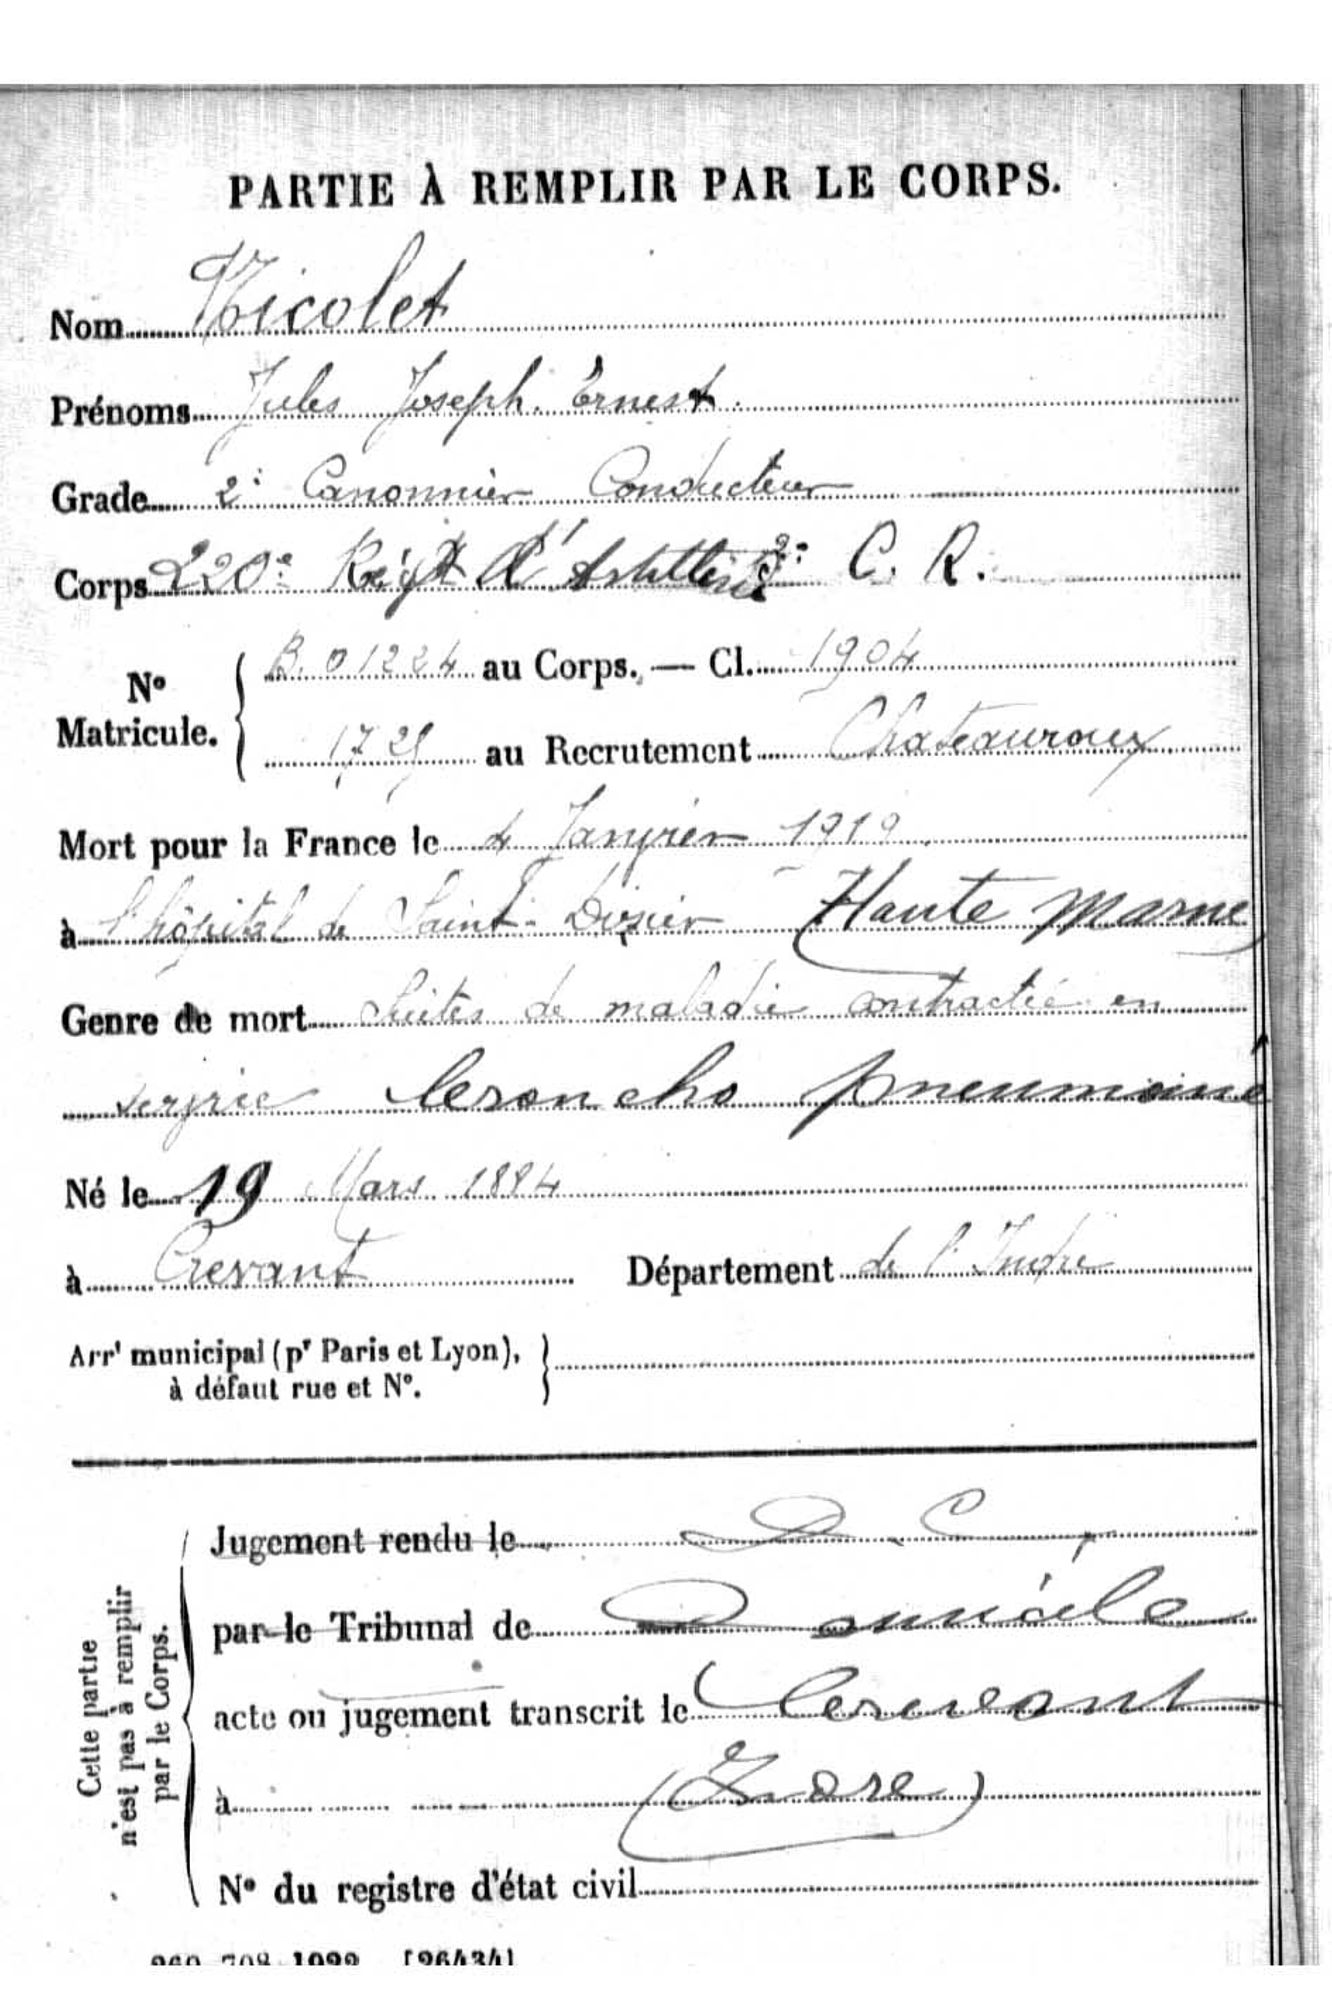 PARTIE À REMPLIR PAR LE CORPS.
Nom Nicolet
Prénoms Jules Joseph Ernest
Grade 2e Canonnier Conducteur
Corps 220e Régt d'Artillerie C. R.
No Matricule. B. 01224 au Corps. — Cl. 1904
1725 au Recrutement Chateauroux
Mort pour la France le 4 Janvier 1919
à l'hôpital de Saint-Dizier Haute Marne
Genre de mort Suites de maladie contractée en
service broncho pneumonie
Né le 19 Mars 1884
à Crevant Département de l'Indre
Arrt municipal (pr Paris et Lyon),
à défaut rue et No.
Cette partie
n'est pas à remplir
par le Corps.
Jugement rendu le D. C.
par le Tribunal de Domicile
acte ou jugement transcrit le Crevant
à (Indre)
No du registre d'état civil
[26434]